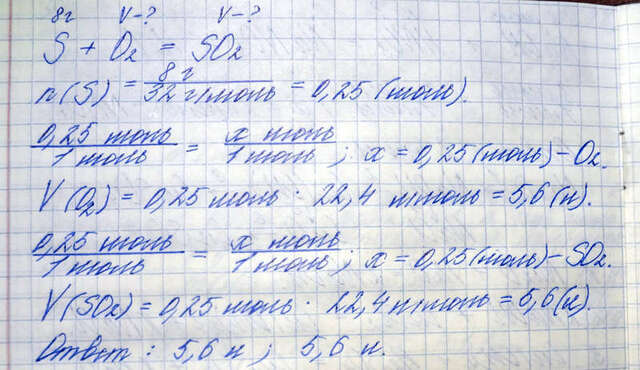 8г V-? V-?
S + O₂ = SO₂
n(S) = 8 г / 32 г/моль = 0,25 (моль).
0,25 моль / 1 моль = x моль / 1 моль ; x = 0,25 (моль) - O₂.
V(O₂) = 0,25 моль · 22,4 л/моль = 5,6 (л).
0,25 моль / 1 моль = x моль / 1 моль ; x = 0,25 (моль) - SO₂.
V(SO₂) = 0,25 моль · 22,4 л/моль = 5,6 (л).
Ответ : 5,6 л ; 5,6 л.